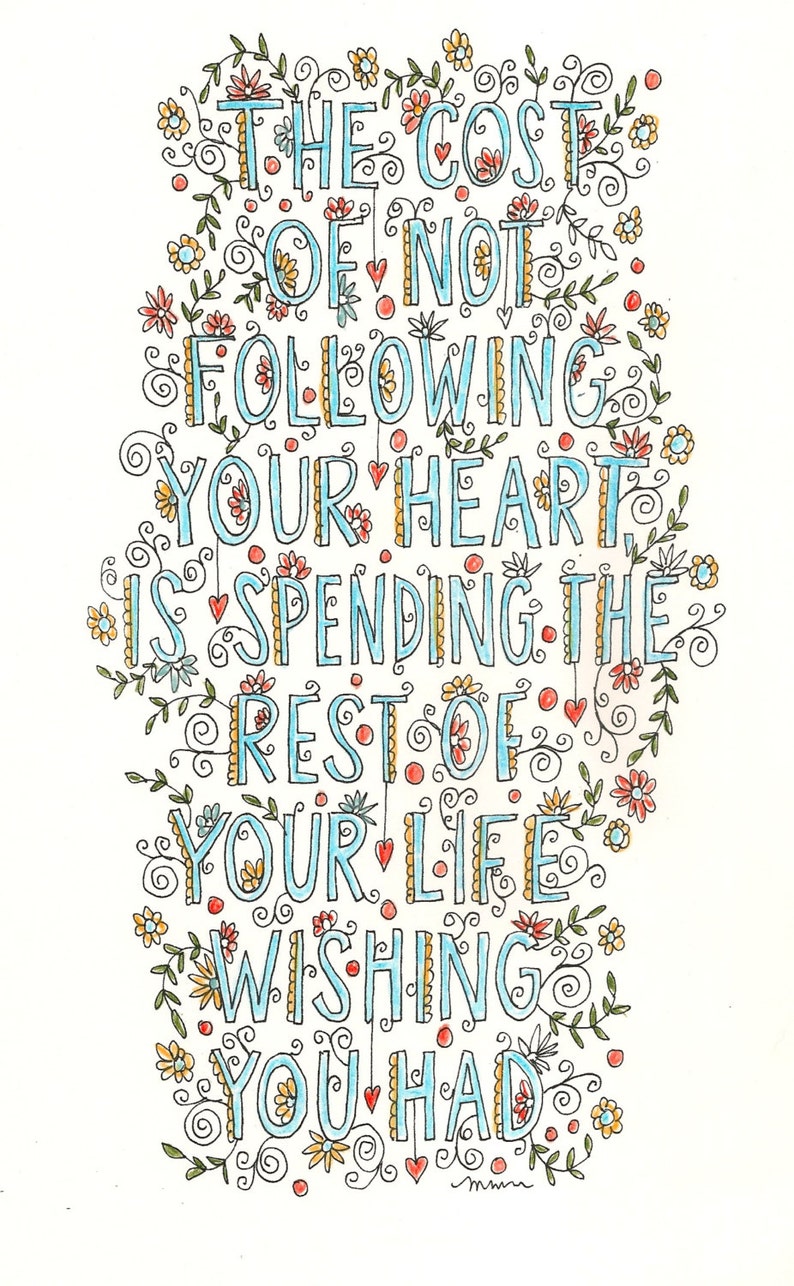 THE COST
OF NOT
FOLLOWING
YOUR HEART,
IS SPENDING THE
REST OF
YOUR LIFE
WISHING
YOU HAD